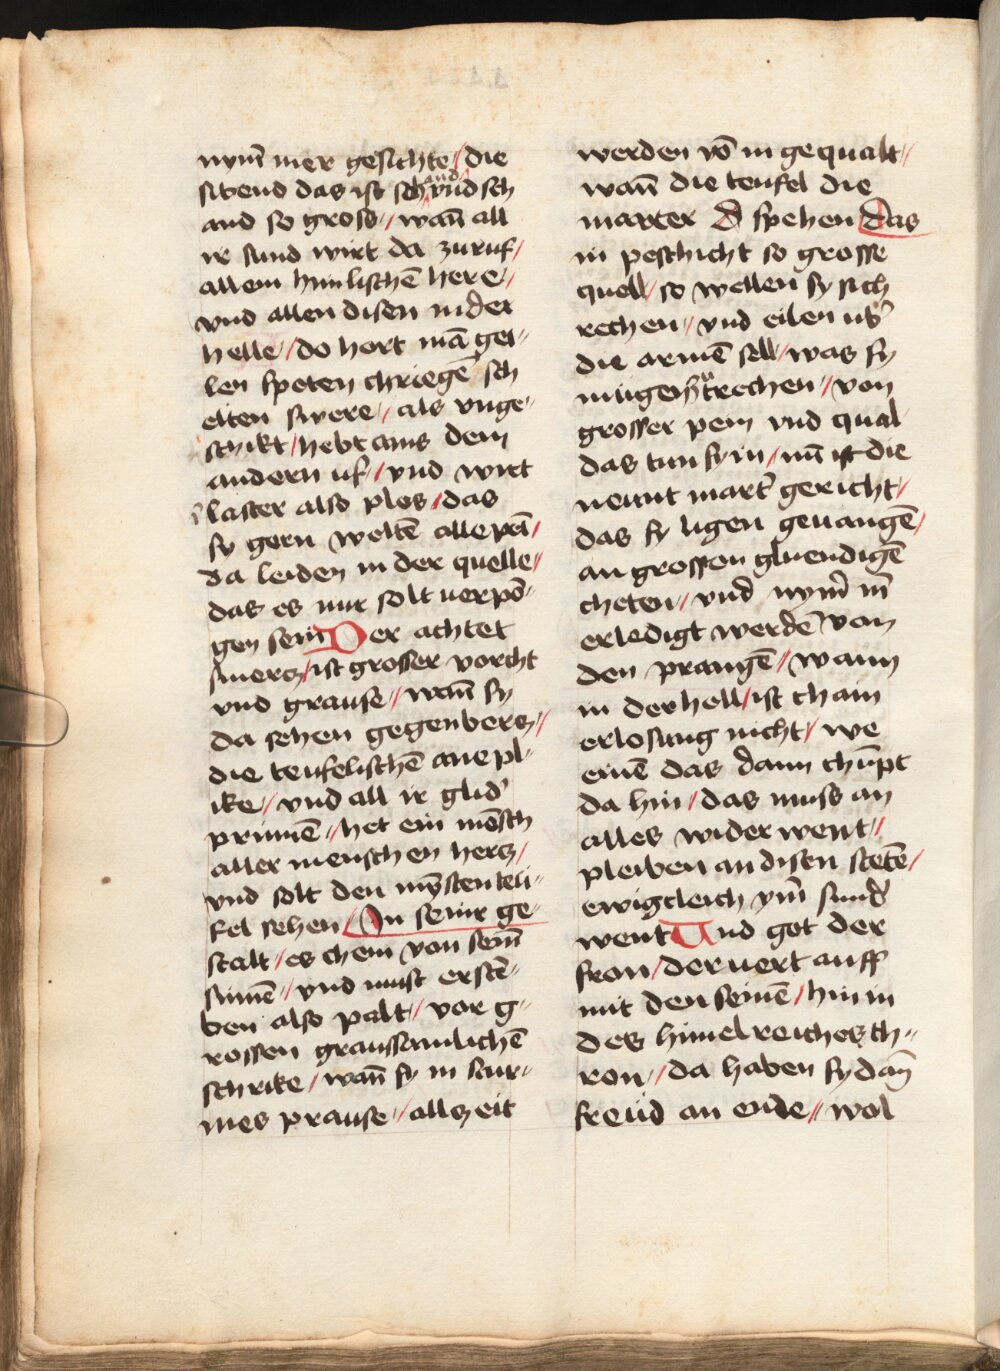 nym̄ mer gesichte / die
sibend das ist sch and vnd sch
and so gross / wan̄ all
ir sund wirt da zuruf /
allem himlischē here //
vnd allen disen in der
helle / do hort mā gei //
len speten chriegē sch
elten swere // als vnge //
schikt / hebt ains dem
andern uf // vnd wirt
laster also plos / das
sy gern woltē alle pei /
da leiden in der quelle //
das es nur solt uerpo //
gen sein Der achtet
smercz / ist grosser vorcht
vnd grause // wan̄ sy
da sehen gegenbercz //
die teufelischē anepl //
ike // vnd all ir glid
primē // het ein mēsch
aller menschen hercz /
vnd solt den mȳsten teu //
fel sehen / In seinr ge
stalt / es chem von seim̄
sinnē // vnd must ersterͤ //
ben also palt // vor g //
rossen graussamlichē
schrike / wan̄ sy in stur //
mes prause // allczeit
werden vō in gequalt //
wan̄ die teufel die
marter d spehen das
in peschicht so grosse
quell / so wellen sy sich
rechen // vnd eilen ub
die armē sell / was sy
mugen trechen // von
grosser pein vnd qual
das tun sy in / nu ist die
neunt mart gericht /
das sy ligen geuangē /
an grossen gluendigē
cheten // vnd nym̄ m̄
erledigt werdē von
den prangē // wann
in der hell / ist chain
erlosung nicht / we
einē das dann chūpt
da hin / das muss an
alles widerwent //
pleiben an disen stetē /
ewigcleich ym̄ sund
went Und got der
fron / der uert auff
mit den seinē / hin in
des himelreiches th //
ron // da haben sy dan̄
freud an ende // wol